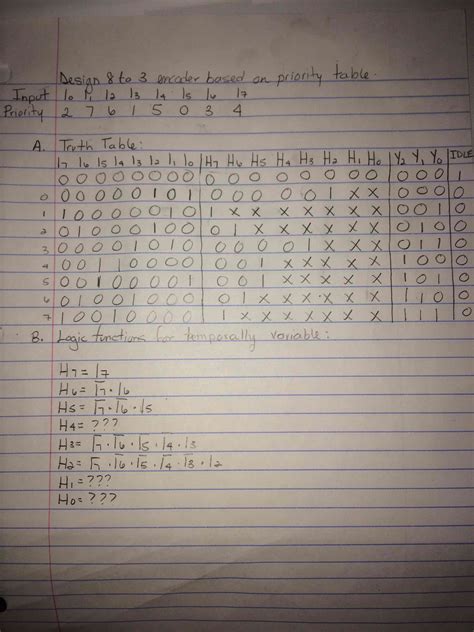 Design 8 to 3 encoder based on priority table.
Input I0 I1 I2 I3 I4 I5 I6 I7
Priority 2 7 6 1 5 0 3 4
A. Truth Table:
I7 I6 I5 I4 I3 I2 I1 I0 H7 H6 H5 H4 H3 H2 H1 H0 Y2 Y1 Y0 IDLE
0 0 0 0 0 0 0 0 0 0 0 0 0 0 0 0 0 0 0 1
0 0 0 0 0 0 1 0 1 0 0 0 0 0 1 X X 0 0 0 0
1 1 0 0 0 0 0 1 0 1 X X X X X X X 0 0 1 0
2 0 1 0 0 0 1 0 0 0 1 X X X X X X 0 1 0 0
3 0 0 0 0 1 0 1 0 0 0 0 0 1 X X X 0 1 1 0
4 0 0 1 1 0 0 0 0 0 0 1 X X X X X 1 0 0 0
5 0 0 1 0 0 0 0 1 0 0 1 X X X X X 1 0 1 0
6 0 1 0 0 1 0 0 0 0 1 X X X X X X 1 1 0 0
7 1 0 0 1 0 0 0 0 1 X X X X X X X 1 1 1 0
B. Logic functions for temporally variable:
H7 = I7
H6 = I̅7 · I6
H5 = I̅7 · I̅6 · I5
H4 = ???
H3 = I̅7 · I̅6 · I̅5 · I̅4 · I3
H2 = I̅7 · I̅6 · I̅5 · I̅4 · I̅3 · I2
H1 = ???
H0 = ???